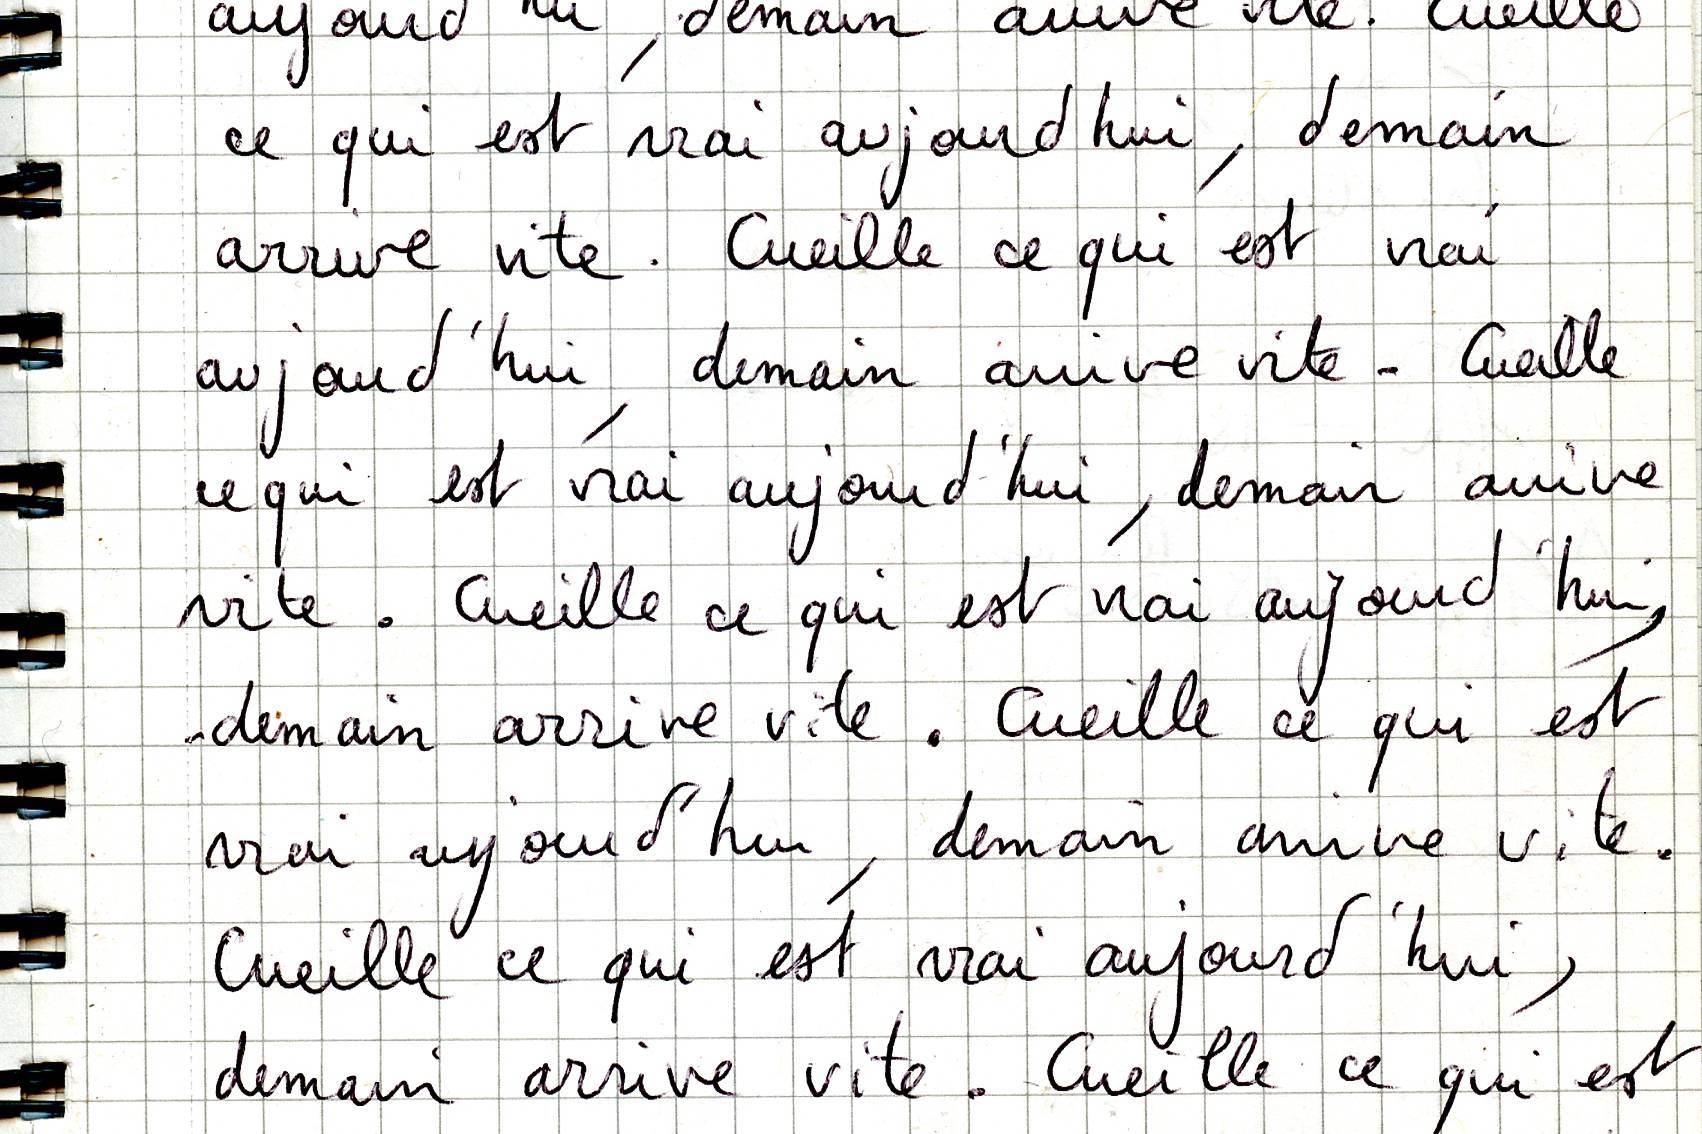 aujourd'hui, demain arrive vite. Cueille
ce qui est vrai aujourd'hui, demain
arrive vite. Cueille ce qui est vrai
aujourd'hui, demain arrive vite. Cueille
ce qui est vrai aujourd'hui, demain arrive
vite. Cueille ce qui est vrai aujourd'hui,
demain arrive vite. Cueille ce qui est
vrai aujourd'hui, demain arrive vite.
Cueille ce qui est vrai aujourd'hui,
demain arrive vite. Cueille ce qui est